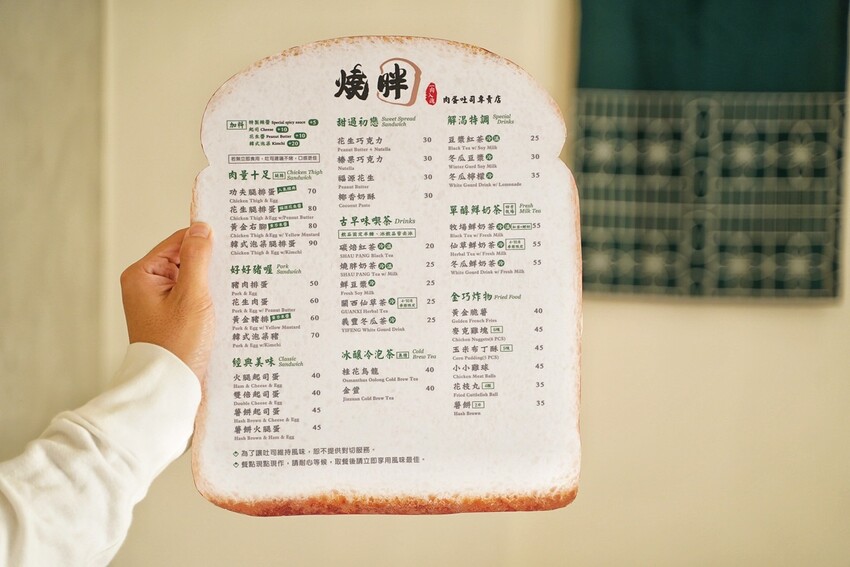 燒胖
肉蛋吐司專賣店
加料
特製辣醬 Special spicy sauce +5
起司 Cheese +10
花生醬 Peanut Butter +10
韓式泡菜 Kimchi +20
肉量十足 Chicken Thigh Sandwich
功夫腿排蛋 70
Chicken Thigh & Egg
花生腿排蛋 80
Chicken Thigh & Egg w/Peanut Butter
黃金右腳 80
Chicken Thigh & Egg w/ Yellow Mustard
韓式泡菜腿排蛋 90
Chicken Thigh & Egg w/Kimchi
好好豬喔 Pork Sandwich
豬肉排蛋 50
Pork & Egg
花生肉蛋 60
Pork & Egg w/ Peanut Butter
黃金豬排 60
Pork & Egg w/ Yellow Mustard
韓式泡菜豬 70
Pork & Egg w/Kimchi
經典美味 Classic Sandwich
火腿起司蛋 40
Ham & Cheese & Egg
雙倍起司蛋 40
Double Cheese & Egg
薯餅起司蛋 45
Hash Brown & Cheese & Egg
薯餅火腿蛋 45
Hash Brown & Ham & Egg
甜過初戀 Sweet Spread Sandwich
花生巧克力 30
Peanut Butter + Nutella
榛果巧克力 30
Nutella
福源花生 30
Peanut Butter
椰香奶酥 30
Coconut Paste
古早味喫茶 Drinks
碳焙紅茶 冷 溫 20
SHAU PANG Black Tea
燒胖奶茶 冷 溫 25
SHAU PANG Tea w/ Milk
鮮豆漿 冷 25
Fresh Soy Milk
關西仙草茶 冷 25
GUANXI Herbal Tea
義豐冬瓜茶 冷 25
YIFENG White Gourd Drink
冰釀冷泡茶 Cold Brew Tea
桂花烏龍 40
Osmanthus Oolong Cold Brew Tea
金萱 40
Jinxuan Cold Brew Tea
解渴特調 Special Drinks
豆漿紅茶 冷 溫 25
Black Tea w/ Soy Milk
冬瓜豆漿 冷 30
Winter Gurd Soy Milk
冬瓜檸檬 冷 35
White Gourd Drink w/ Lemonade
單醇鮮奶茶 Fresh Milk Tea
牧場鮮奶茶 冷 溫 55
Black Tea w/ Fresh Milk
仙草鮮奶茶 冷 55
Herbal Tea w/ Fresh Milk
冬瓜鮮奶茶 冷 55
White Gourd Drink w/ Fresh Milk
金巧炸物 Fried Food
黃金脆薯 40
Golden French Fries
麥克雞塊 45
Chicken Nuggets(5 PCS)
玉米布丁酥 45
Corn Pudding(5 PCS)
小小雞球 45
Chicken Meat Balls
花枝丸 35
Fried Cuttlefish Ball
薯餅 35
Hash Brown
為了讓吐司維持風味，恕不提供對切服務。
餐點現點現作，請耐心等候，取餐後請立即享用風味最佳。